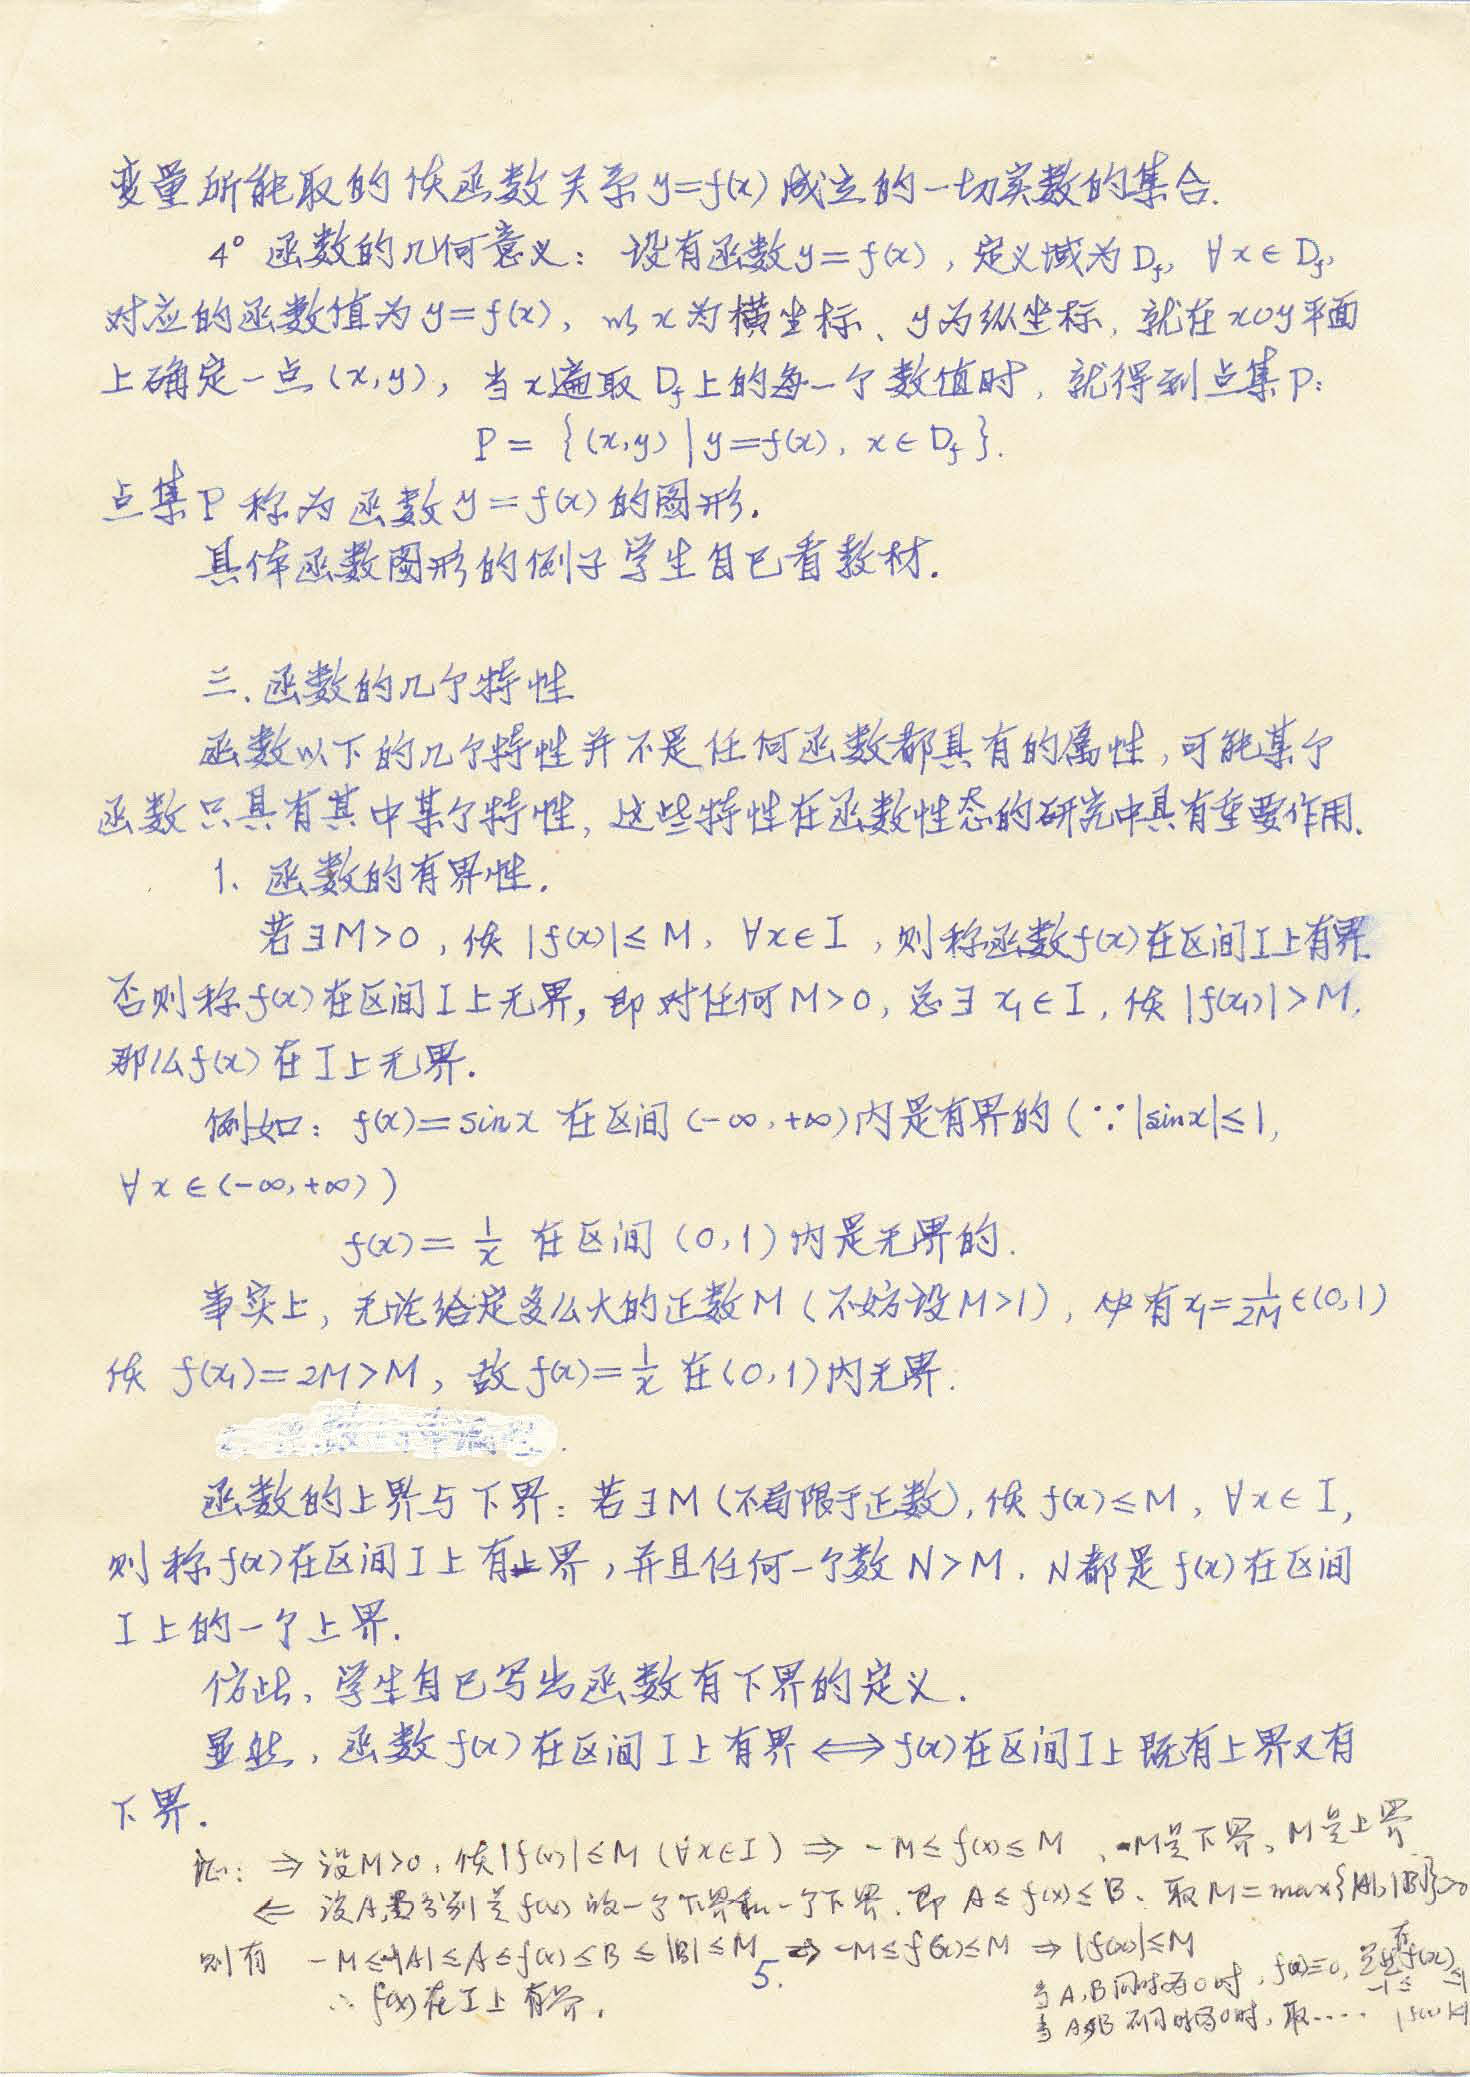 变量所能取的使函数关系y=f(x)成立的一切实数的集合.
4° 函数的几何意义：设有函数y=f(x)，定义域为D_f，∀x∈D_f，
对应的函数值为y=f(x)，以x为横坐标、y为纵坐标，就在xoy平面
上确定一点(x,y)，当x遍取D_f上的每一个数值时，就得到点集P：
P={(x,y)|y=f(x)，x∈D_f}.
点集P称为函数y=f(x)的图形.
具体函数图形的例子学生自己看教材.
三.函数的几个特性
函数以下的几个特性并不是任何函数都具有的属性，可能某个
函数只具有其中某个特性，这些特性在函数性态的研究中具有重要作用.
1、函数的有界性.
若∃M>0，使|f(x)|≤M，∀x∈I，则称函数f(x)在区间I上有界.
否则称f(x)在区间I上无界，即对任何M>0，总∃x₁∈I，使|f(x₁)|>M，
那么f(x)在I上无界.
例如：f(x)=sinx 在区间(-∞,+∞)内是有界的(∵|sinx|≤1，
∀x∈(-∞,+∞))
f(x)=1/x 在区间(0,1)内是无界的.
事实上，无论给定多么大的正数M(不妨设M>1)，必有x₁=1/2M∈(0,1)
使 f(x₁)=2M>M，故f(x)=1/x在(0,1)内无界.
函数的上界与下界：若∃M(不局限于正数)，使f(x)≤M，∀x∈I，
则称f(x)在区间I上有上界，并且任何一个数N>M，N都是f(x)在区间
I上的一个上界.
仿此，学生自己写出函数有下界的定义.
显然，函数f(x)在区间I上有界⟺f(x)在区间I上既有上界又有
下界.
证：⇒设M>0，使|f(x)|≤M(∀x∈I)⇒-M≤f(x)≤M，-M是下界、M是上界
⇐ 设A,B分别是f(x)的一个下界和一个下界.即A≤f(x)≤B、取M=max{|A|,|B|}>0
则有 -M≤-|A|≤A≤f(x)≤B≤|B|≤M ⇒-M≤f(x)≤M⇒|f(x)|≤M
∴f(x)在I上有界.
5.
当A,B同时为0时，f(x)≡0，
当A,B不同时为0时，取……